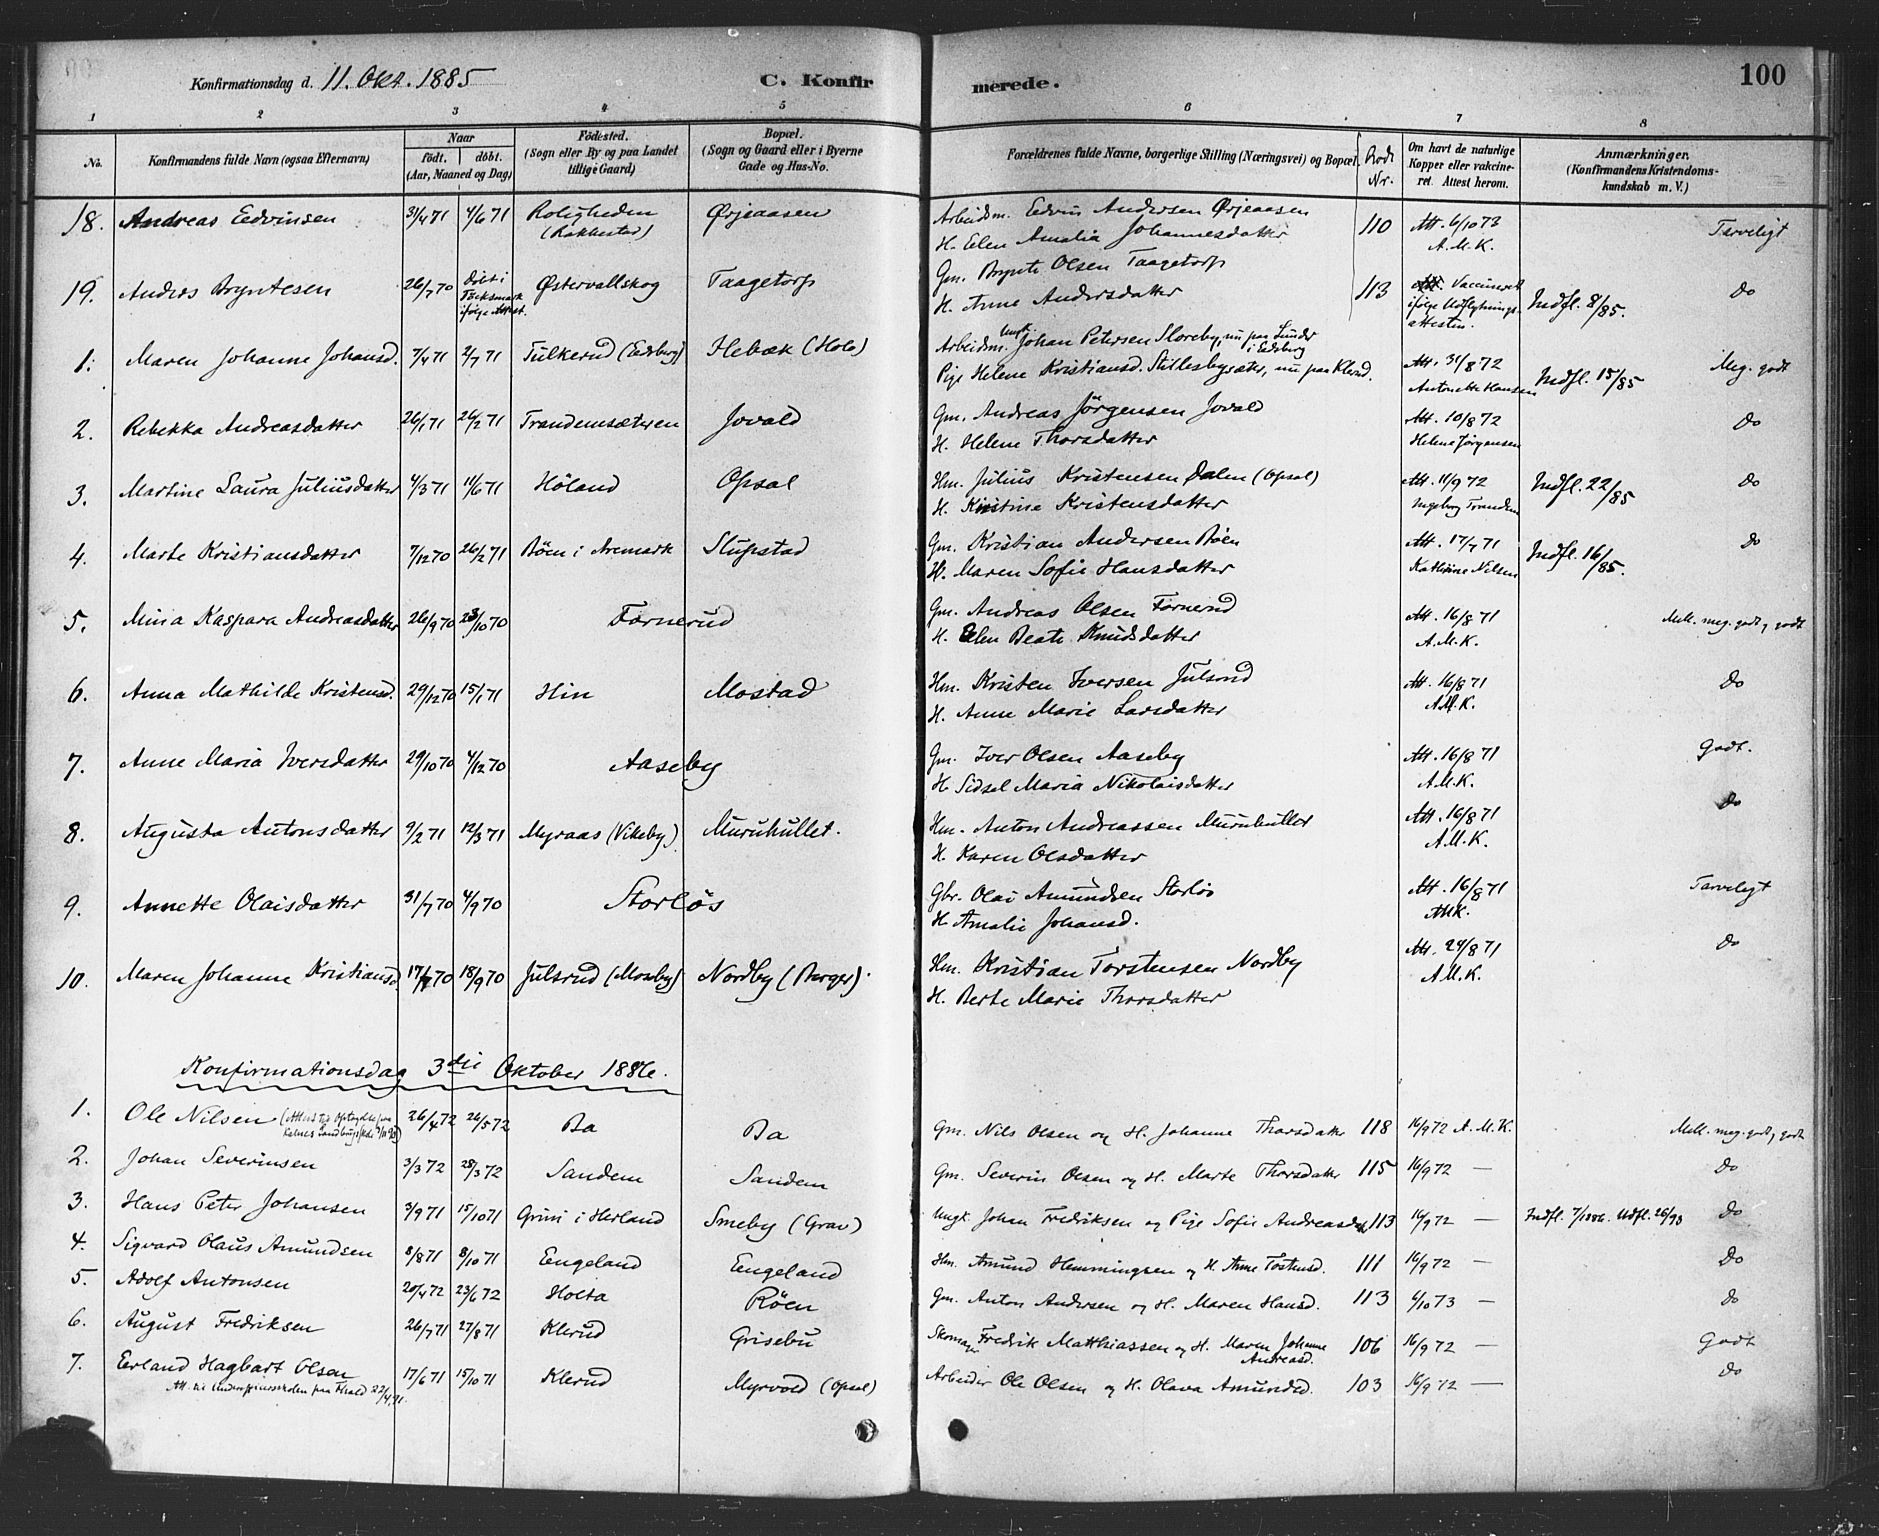 Konfirmationsdag d. 11. Okt. 1885 C. Konfirmerede. 100
1 2 3 4 5 6 7 8
No. Konfirmandens fulde Navn (ogsaa Efternavn) Naar født. døbt. (Aar, Maaned og Dag) Fødested. (Sogn eller By og paa Landet tillige Gaard) Bopæl. (Sogn og Gaard eller i Byerne Gade og Hus-No. Forældrenes fulde Navne, borgerlige Stilling (Næringsvei) og Bopæl. Nr. Om havt de naturlige Kopper eller vakcineret. Attest herom. Anmærkninger. (Konfirmandens Kristendomskundskab m. V.)
18. Andreas Edvinsen 31/4 71 4/6 71 Roligheden (Rakkestad) Ørjeaasen Arbeidsm. Edvin Andersen Ørjeaasen 110 Att. 6/10 73 Tarveligt
H. Elen Amalia Johannesdatter A.M.K.
19. Andres Bryntesen 26/7 70 Døbt i ifølge Attest. Østervallskog Taagetorp Gm. Brynte Olsen Taagetorp 113 Vaccineret ifølge Udflytnings-attesten. Indfl. 8/85. Do
H. Anne Andersdatter
1. Maren Johanne Johansd. 7/4 71 2/7 71 Tulkerud (Eidsberg) Hebæk (Holo) Arbeidsm. Ungk. Johan Petersen Storeby, nu paa Lunder i Eidsberg Att. 31/8 72 Indfl. 15/85 Meg. godt
Pige Helene Kristiansd. Stillesbysæter, nu paa Klerud. Antonette Hansen
2. Rebekka Andreasdatter 26/1 71 26/2 71 Trandemsæteren Jovald Gm. Andreas Jørgensen Jovald Att. 10/8 72 Do
H. Helene Thorsdatter Helene Jørgensen
3. Martine Laura Juliusdatter 4/3 71 11/6 71 Høland Opsal Hm. Julius Kristensen Dalen (Opsal) Att. 11/9 72 Indfl. 22/85 Do
H. Kristine Kristensdatter Ingeborg Trandem
4. Marte Kristiansdatter 7/12 70 26/2 71 Bøen i Aremark Slupstad Gm. Kristian Andersen Bøen Att. 17/7 71 Indfl. 16/85. Do
H. Maren Sofie Hansdatter Kathrine Nilsen
5. Mina Kaspara Andreasdatter 26/9 70 23/10 70 Fornerud Gm. Andreas Olsen Fornerud Att. 16/8 71 Mell. meg. godt og godt
H. Elen Beate Knudsdatter A.M.K.
6. Anna Mathilde Kristensd. 29/12 70 15/1 71 Hin Mostad Hm. Kristen Iversen Julsrud Att. 16/8 71 Do
H. Anne Marie Larsdatter A.M.K.
7. Anne Maria Iversdatter 29/10 70 4/12 70 Aaseby Gm. Iver Olsen Aaseby Att. 16/8 71 Godt.
H. Sidsel Maria Nikolaisdatter A.M.K.
8. Augusta Antonsdatter 9/2 71 12/3 71 Myraas (Vikeby) Muruhullet. Hm. Anton Andreassen Muruhullet Att. 16/8 71 Do
H. Karen Olsdatter A.M.K.
9. Annette Olaisdatter 31/7 70 4/9 70 Storløs Gbr. Olai Amundsen Storløs Att. 16/8 71 Tarveligt
H. Amalie Johansd. AMK.
10. Maren Johanne Kristiansd. 17/7 70 18/9 70 Julsrud (Moseby) Nordby (Berger). Hm. Kristian Torstensen Nordby Att. 29/8 71 Do
H. Berte Marie Thorsdatter A.M.K.
Konfirmationsdag 3die Oktober 1886.
1. Ole Nilsen 26/4 72 26/5 72 Ba Ba Gm. Nils Olsen og H. Johanne Thorsdatter 118 16/9 72 A.M.K. Mell. meg. godt og godt
2. Johan Severinsen 3/3 72 28/3 72 Sandem Sandem Gm. Severin Olsen og H. Marte Thorsdatter 115 16/9 72 — Do
3. Hans Peter Johansen 3/9 71 15/10 71 Grini i Herland Smeby (Grav) Ungk. Johan Fredriksen og Pige Sofie Andreasdatt 113 16/9 72 — Indfl. 7/1886. Udfl. 26/93 Do
4. Sigvard Olaus Amundsen 8/8 71 8/10 71 Eengeland Eengeland Hm. Amund Hemmingsen og H. Anne Tostensd. 111 16/9 72 — Do
5. Adolf Antonsen 20/4 72 23/6 72 Holta Røen Gm. Anton Andersen og H. Maren Hansd. 113 6/10 73 — Do
6. August Fredriksen 26/7 71 27/8 71 Klerud Grisebu Skomager Fredrik Matthiassen og H. Maren Johanne Andreasd. 106 16/9 72 — Godt
7. Eerland Hagbart Olsen 17/6 71 15/10 71 Klerud Myrvold (Opsal) Arbeider Ole Olsen og H. Olava Amundsd. 103 16/9 72 — Do